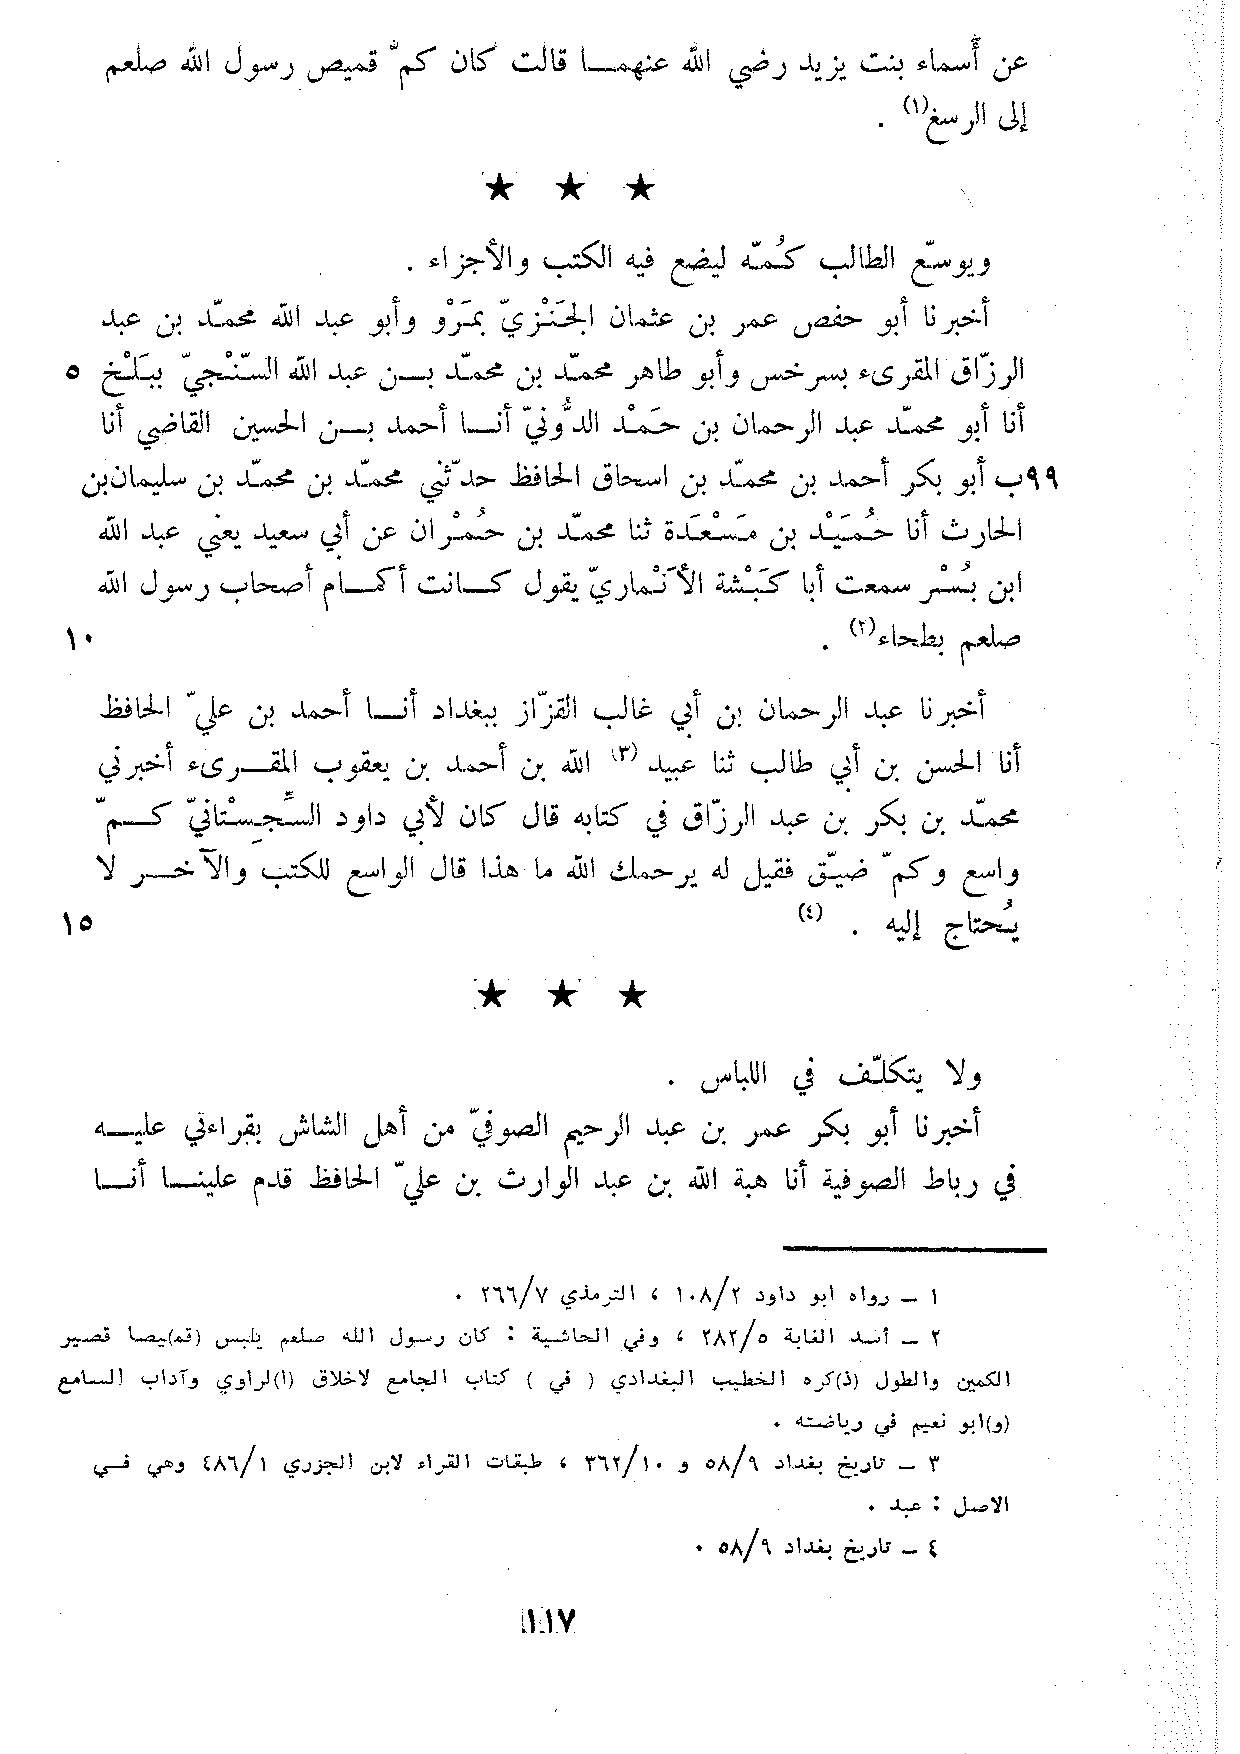 عن أَسماء بنت يزيد رضي الله عنهما قالت كان كمّ قميص رسول الله صلعم
إلى الرسغ(١) .
★ ★ ★
ويوسّع الطالب كُمّه ليضع فيه الكتب والأجزاء .
أخبرنا أبو حفص عمر بن عثمان الجَنْزيّ بمَرْو وأبو عبد الله محمّد بن عبد
الرزّاق المقرىء بسرخس وأبو طاهر محمّد بن محمّد بن عبد الله السّنْجيّ ببَلْخ ٥
أنا أبو محمّد عبد الرحمان بن حَمْد الدُّونيّ أنا أحمد بن الحسين القاضي أنا
٩٩ب أبو بكر أحمد بن محمّد بن اسحاق الحافظ حدّثني محمّد بن محمّد بن سليمان بن
الحارث أنا حُمَيْد بن مَسْعَدَة ثنا محمّد بن حُمْران عن أبي سعيد يعني عبد الله
ابن بُسْر سمعت أبا كَبْشة الأَنْماريّ يقول كانت أكمام أصحاب رسول الله
صلعم بطحاء(٢) . ١٠
أخبرنا عبد الرحمان بن أبي غالب القزّاز ببغداد أنا أحمد بن عليّ الحافظ
أنا الحسن بن أبي طالب ثنا عبيد (٣) الله بن أحمد بن يعقوب المقرىء أخبرني
محمّد بن بكر بن عبد الرزّاق في كتابه قال كان لأبي داود السِّجِسْتانيّ كمّ
واسع وكمّ ضيّق فقيل له يرحمك الله ما هذا قال الواسع للكتب والآخر لا
يُحتاج إليه . (٤) ١٥
★ ★ ★
ولا يتكلّف في اللباس .
أخبرنا أبو بكر عمر بن عبد الرحيم الصوفيّ من أهل الشاش بقراءتي عليه
في رباط الصوفية أنا هبة الله بن عبد الوارث بن عليّ الحافظ قدم علينا أنا
١ – رواه ابو داود ٢/١٠٨ ، الترمذي ٧/٢٦٦ .
٢ – أسد الغابة ٥/٢٨٢ ، وفي الحاشية : كان رسول الله صلعم يلبس (قم)يصا قصير
الكمين والطول (ذ)كره الخطيب البغدادي ( في ) كتاب الجامع لاخلاق (ا)لراوي وآداب السامع
(و)ابو نعيم في رياضته .
٣ – تاريخ بغداد ٩/٥٨ و ١٠/٣٦٢ ، طبقات القراء لابن الجزري ١/٤٨٦ وهي في
الاصل : عبد .
٤ – تاريخ بغداد ٩/٥٨ .
١١٧